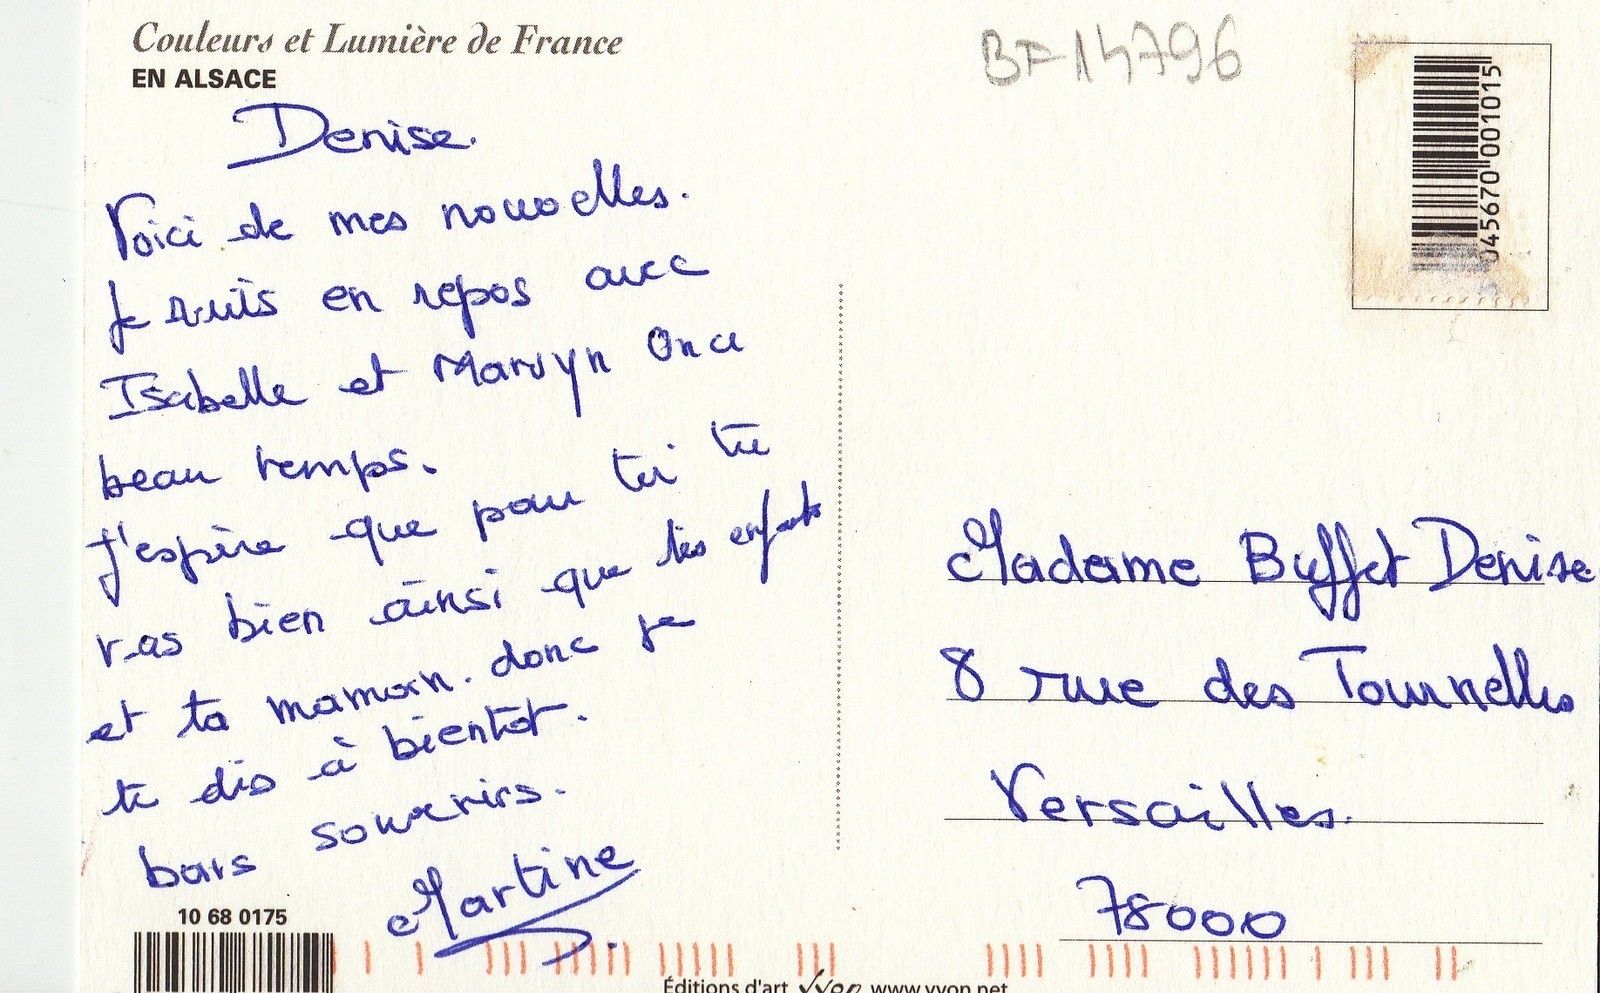 Couleurs et Lumière de France
EN ALSACE
BF14796
045670 001015
Denise.
Voici de mes nouvelles.
Je suis en repos avec
Isabelle et Marvyn On a
beau temps.
J'espère que pour toi tu
vas bien ainsi que tes enfants
et ta maman. donc je
te dis à bientot.
bons souvenirs.
Martine
Madame Buffet Denise
8 rue des Tournelles
Versailles.
78000
10 68 0175
Éditions d'art yvon www.yvon.net